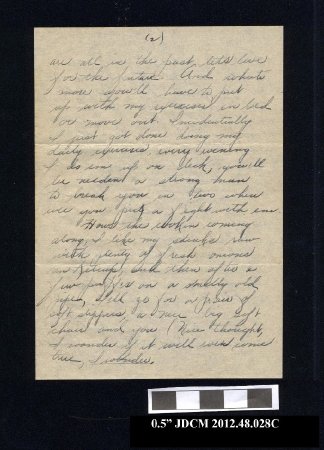 (2)
are all in the past, lets live
for the future. And whats
more you'll have to put
up with my exercises in bed
or move out. Incidentally
I just got done doing my
daily exercises every evening
I do em up on deck, you'll
be needen a strong man
to break you in two when
ever you pick a fight with em.
Hows the cookin coming
along, I like my steaks raw
with plenty of fresh onions
and then after a
few puffs on a smelly old
pipe, I'll go for a pair of
soft slippers a nice big soft
chair and you (Nice thought,
I wonder if it will ever come
true, I wonder.
0.5" JDCM 2012.48.028C